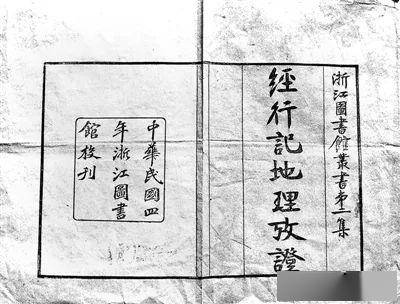 浙江圖書館叢書第一集
經行記地理攷證
中華民國四
年浙江圖書
館校刊